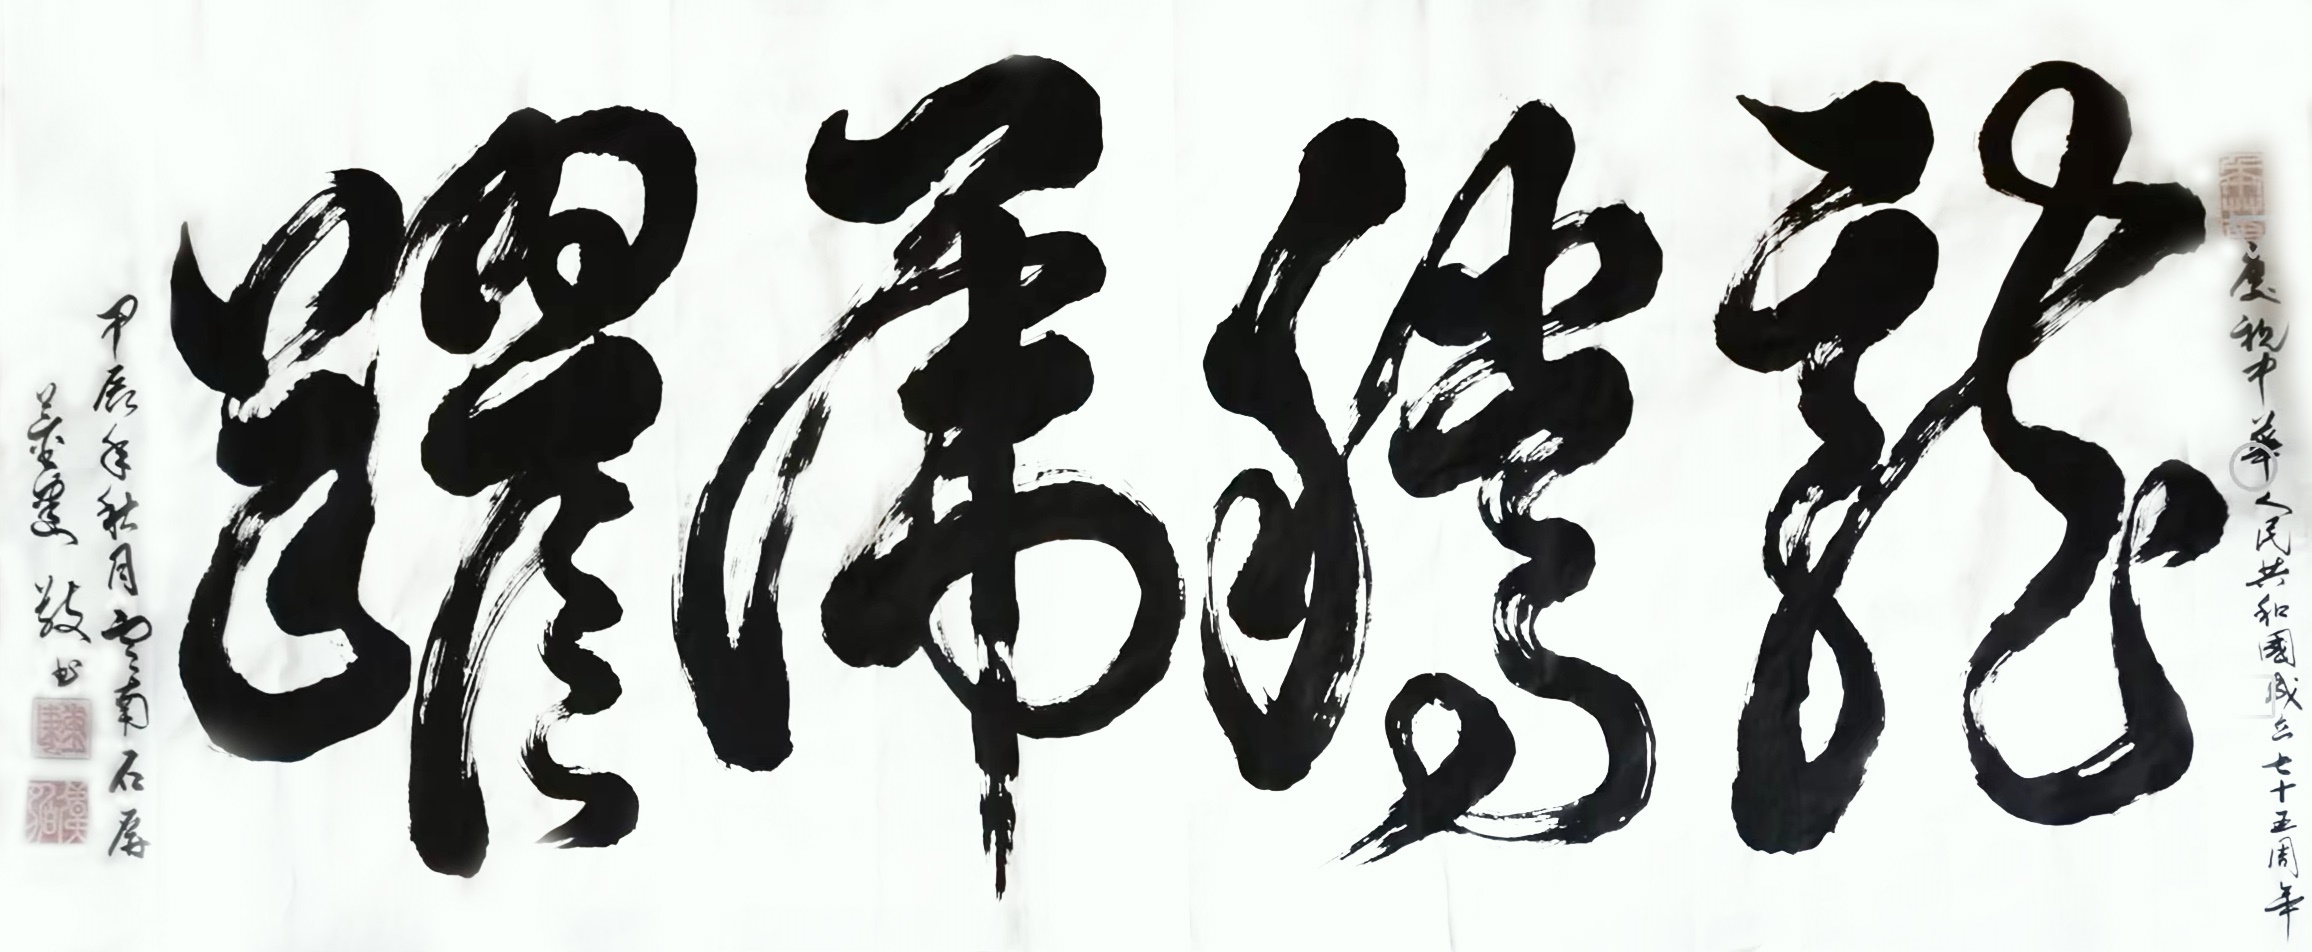 慶祝中華人民共和國成立七十五周年
龍騰虎躍
甲辰年秋月雲南石屏
敬书